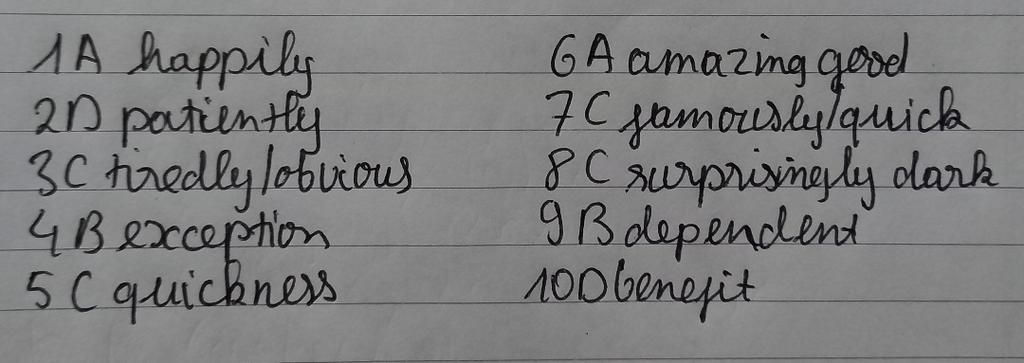 1A happily
2D patiently
3C tiredly/obvious
4B exception
5C quickness
6A amazing good
7C famously/quick
8C surprisingly dark
9B dependent
10D benefit